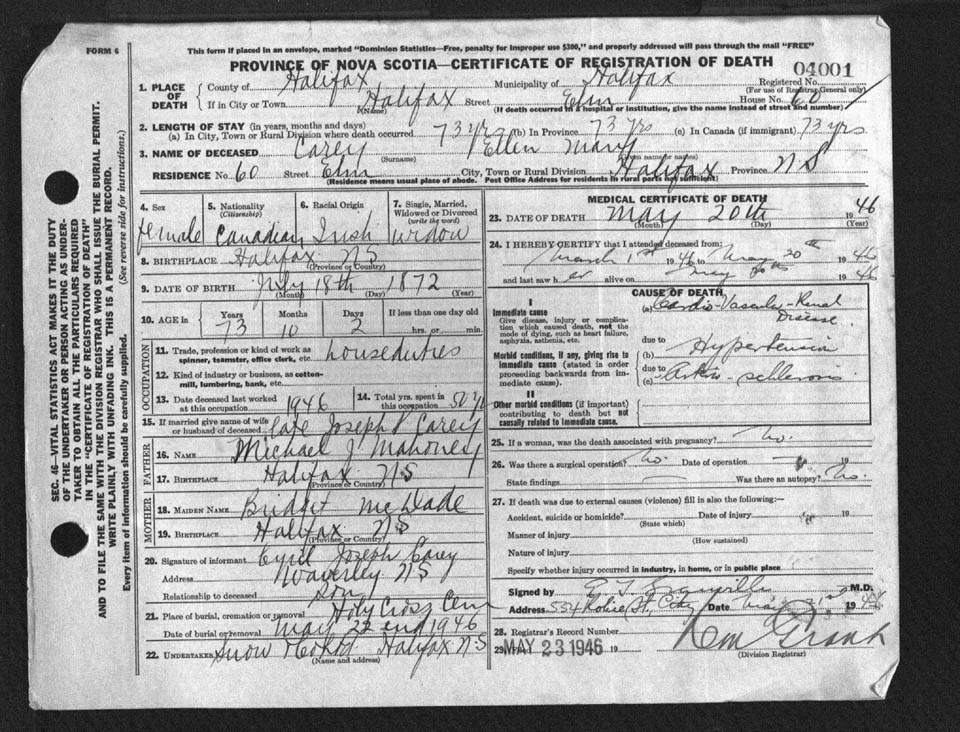 FORM 6
This form if placed in an envelope, marked "Dominion Statistics—Free, penalty for improper use $300," and properly addressed will pass through the mail "FREE"
PROVINCE OF NOVA SCOTIA—CERTIFICATE OF REGISTRATION OF DEATH
04001
1. PLACE OF DEATH
County of Halifax Municipality of Halifax Registered No.
(For use of Registrar General only)
If in City or Town Halifax Street Elm House No. 60
(Name) (If death occurred in a hospital or institution, give the name instead of street and number)
2. LENGTH OF STAY (in years, months and days)
(a) In City, Town or Rural Division where death occurred 73 yrs (b) In Province 73 yrs (c) In Canada (if immigrant) 73 yrs
3. NAME OF DECEASED Carey Ellen Mary
(Surname) (Given name or names)
RESIDENCE No. 60 Street Elm City, Town or Rural Division Halifax Province NS
(Residence means usual place of abode. Post Office Address for residents in rural parts not sufficient)
4. Sex female
5. Nationality (Citizenship) Canadian
6. Racial Origin Irish
7. Single, Married, Widowed or Divorced (write the word) widow
8. BIRTHPLACE Halifax NS
(Province or Country)
9. DATE OF BIRTH July 18th 1872
(Month) (Day) (Year)
10. AGE in Years 73 Months 10 Days 2 If less than one day old hrs. or min.
OCCUPATION
11. Trade, profession or kind of work as spinner, teamster, office clerk, etc. houseduties
12. Kind of industry or business, as cotton-mill, lumbering, bank, etc.
13. Date deceased last worked at this occupation 1946
14. Total yrs. spent in this occupation 50 yrs
15. If married give name of wife or husband of deceased late Joseph Carey
FATHER
16. NAME Michael J Mahoney
17. BIRTHPLACE Halifax NS
(Province or Country)
MOTHER
18. MAIDEN NAME Bridget McDade
19. BIRTHPLACE Halifax NS
(Province or Country)
20. Signature of informant Cyril Joseph Carey
Address Waverley NS
Relationship to deceased son
21. Place of burial, cremation or removal Holy Cross Cem
Date of burial or removal May 22nd 1946
22. UNDERTAKER Snow Halifax NS
(Name and address)
MEDICAL CERTIFICATE OF DEATH
23. DATE OF DEATH May 20th 1946
(Month) (Day) (Year)
24. I HEREBY CERTIFY that I attended deceased from:
March 1st 1946 to May 20th 1946
and last saw her alive on May 20th 1946
CAUSE OF DEATH
I
Immediate cause
Give disease, injury or complication which caused death, not the mode of dying, such as heart failure, asphyxia, asthenia, etc.
(a) Cardio-Vascular-Renal Disease
due to
Morbid conditions, if any, giving rise to immediate cause (stated in order proceeding backwards from immediate cause).
(b) Hypertension
due to
(c) Arterio-schlerosis
II
Other morbid conditions (if important) contributing to death but not causally related to immediate cause.
25. If a woman, was the death associated with pregnancy? No.
26. Was there a surgical operation? No. Date of operation 19
State findings Was there an autopsy? No.
27. If death was due to external causes (violence) fill in also the following:—
Accident, suicide or homicide? Date of injury 19
(State which)
Manner of injury
(How sustained)
Nature of injury
Specify whether injury occurred in industry, in home, or in public place
Signed by M.D.
Address 554 Robie St. City Date May 1946
28. Registrar's Record Number
29. Filed MAY 23 1946 19
(Division Registrar)
SEC. 46—VITAL STATISTICS ACT MAKES IT THE DUTY OF THE UNDERTAKER OR PERSON ACTING AS UNDERTAKER TO OBTAIN ALL THE PARTICULARS REQUIRED IN THE "CERTIFICATE OF REGISTRATION OF DEATH" AND TO FILE THE SAME WITH THE DIVISION REGISTRAR WHO SHALL ISSUE THE BURIAL PERMIT.
WRITE PLAINLY WITH UNFADING INK. THIS IS A PERMANENT RECORD.
Every item of information should be carefully supplied. (See reverse side for instructions.)